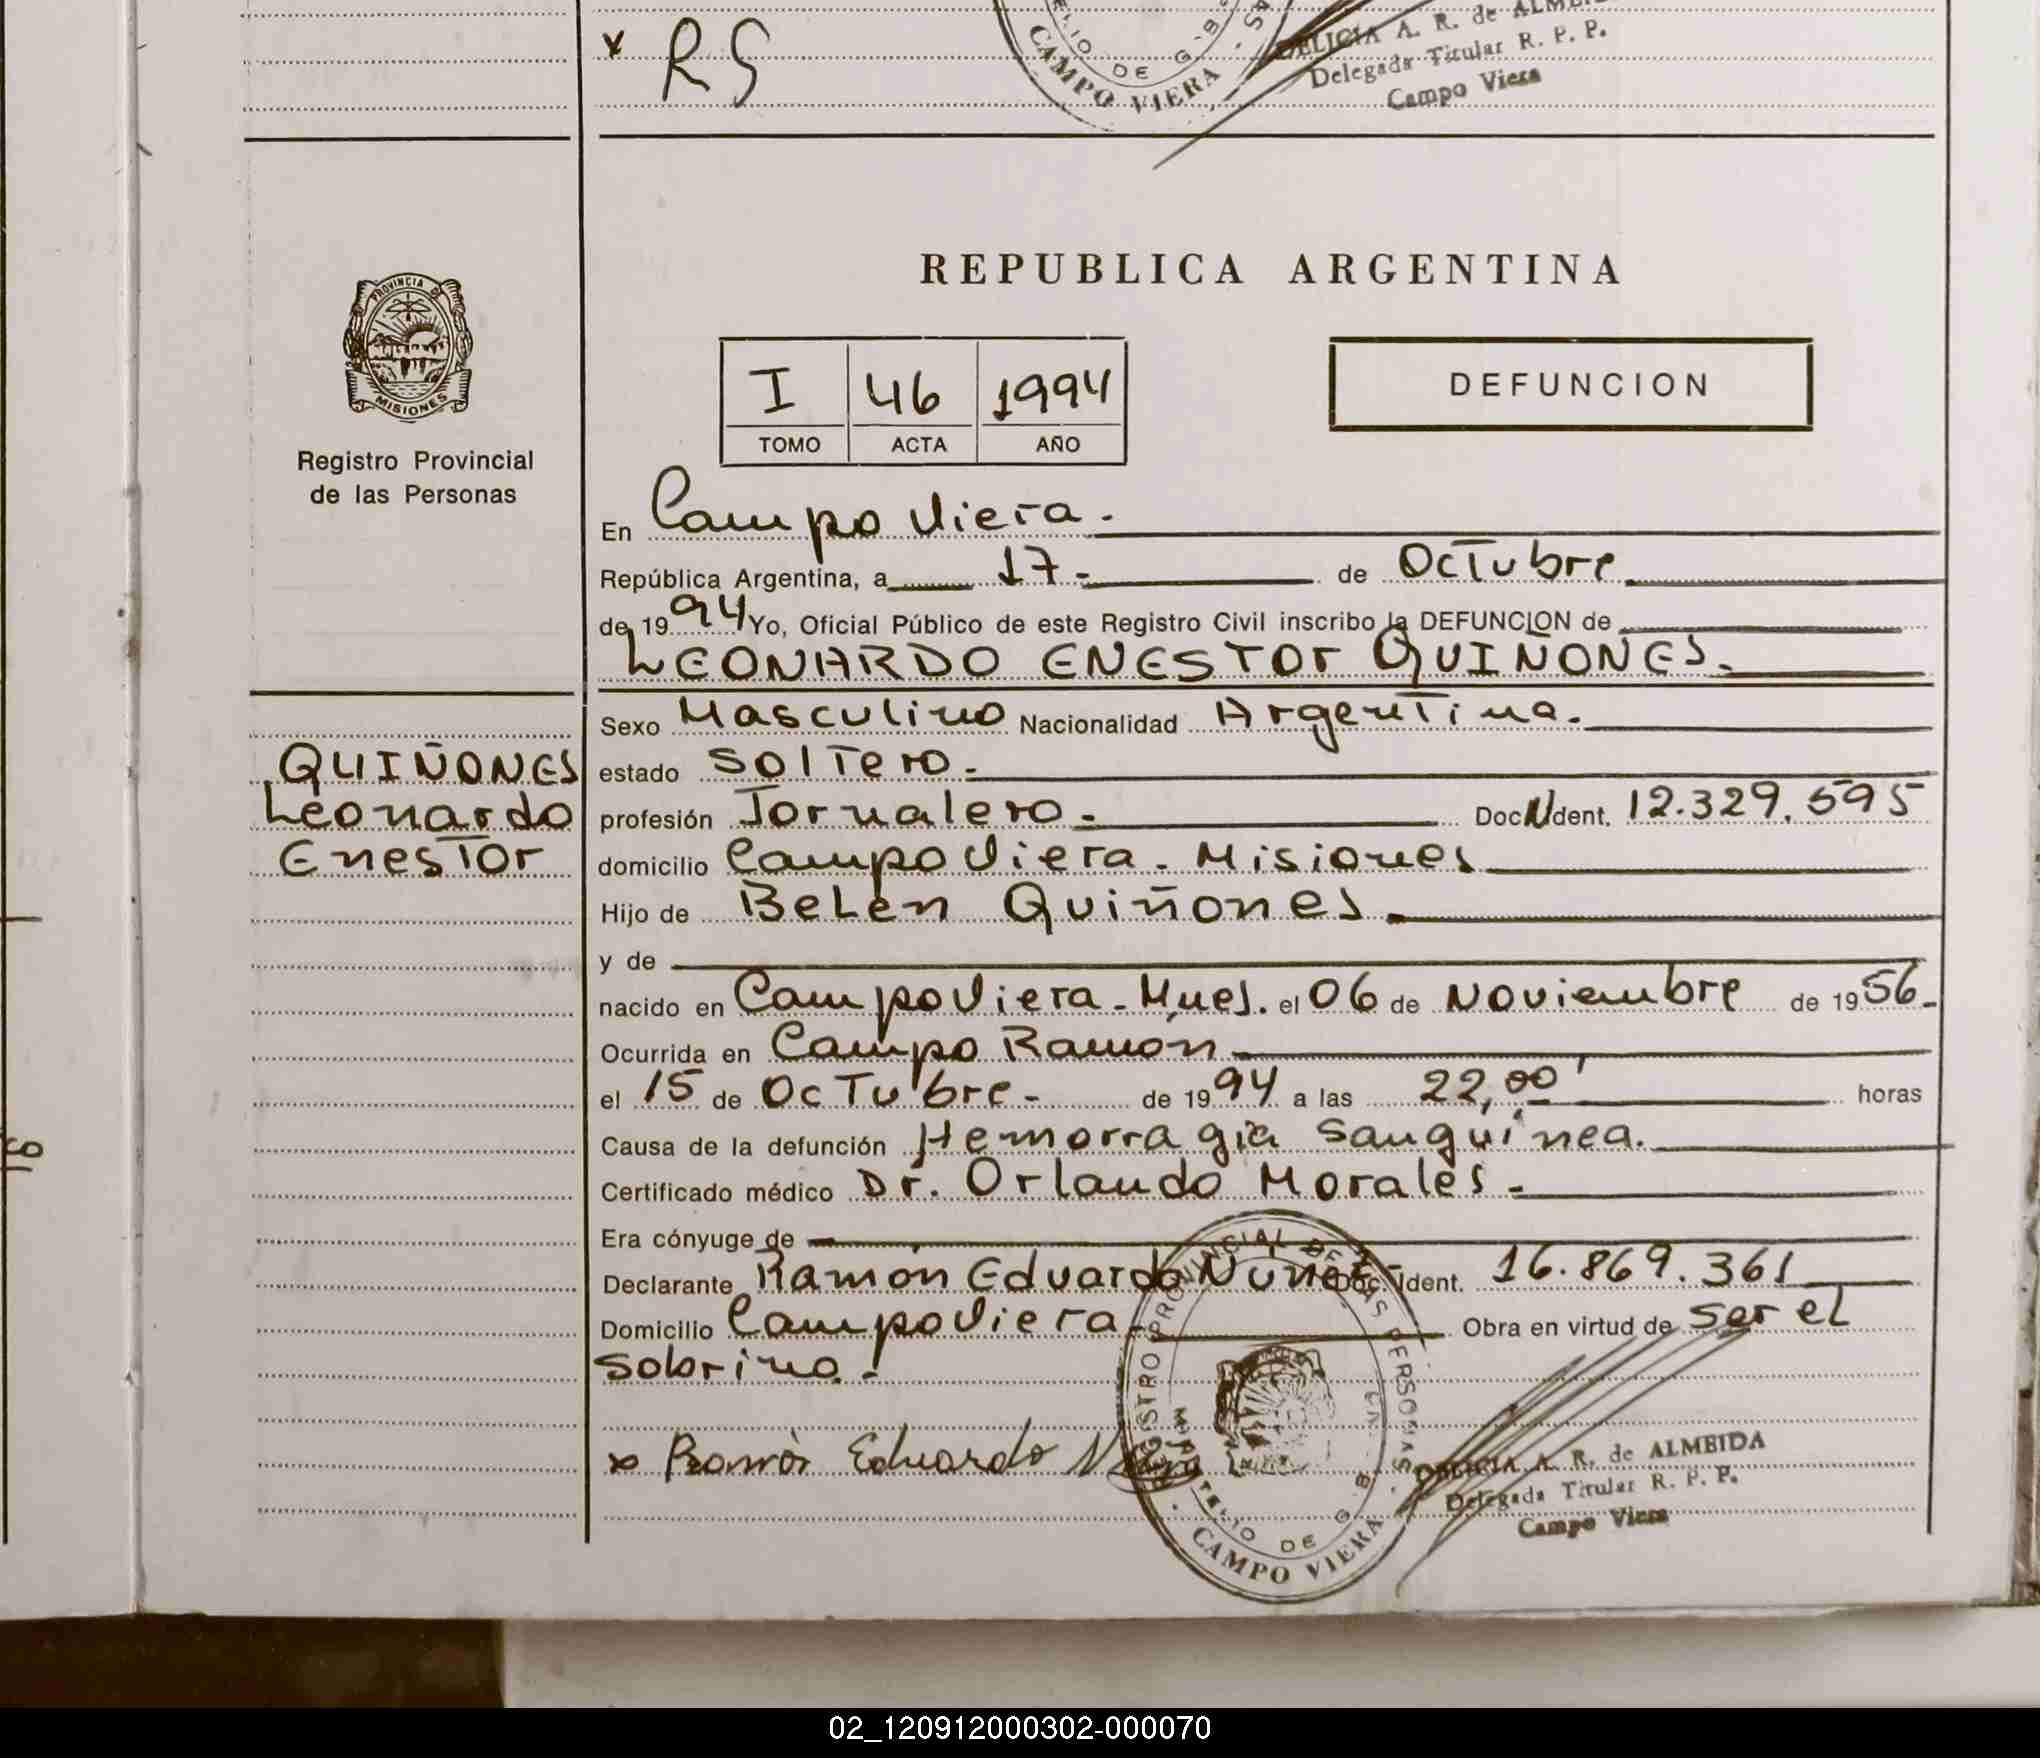 x RS
CAMPO VIERA
DELICIA A. R. de
Delegada Titular R. P. P.
Campo Viera
PROVINCIA DE
MISIONES
Registro Provincial
de las Personas
REPUBLICA ARGENTINA
I 46 1994
TOMO ACTA AÑO
DEFUNCION
En Campo Viera.-
República Argentina, a 17.- de Octubre
de 1994 Yo, Oficial Público de este Registro Civil inscribo la DEFUNCION de
LEONARDO ENESTOR QUIÑONES.-
Sexo Masculino Nacionalidad Argentina.-
QUIÑONES
Leonardo
Enestor
estado Soltero.-
profesión Jornalero.- Doc. N Ident. 12.329.595
domicilio Campo Viera - Misiones
Hijo de Belén Quiñones.-
y de
nacido en Campo Viera - Mnes. el 06 de Noviembre de 1956.-
Ocurrida en Campo Ramón
el 15 de Octubre.- de 1994 a las 22,00 horas
Causa de la defunción Hemorragia Sanguínea.
Certificado médico Dr. Orlando Morales.-
Era cónyuge de
Declarante Ramón Eduardo Nuñez Doc. Ident. 16.869.361
Domicilio Campo Viera.- Obra en virtud de ser el
sobrino.-
x Ramón Eduardo
REGISTRO PROVINCIAL DE LAS PERSONAS
CAMPO VIERA
DELICIA A. R. de ALMEIDA
Delegada Titular R. P. P.
Campo Viera
02_120912000302-000070